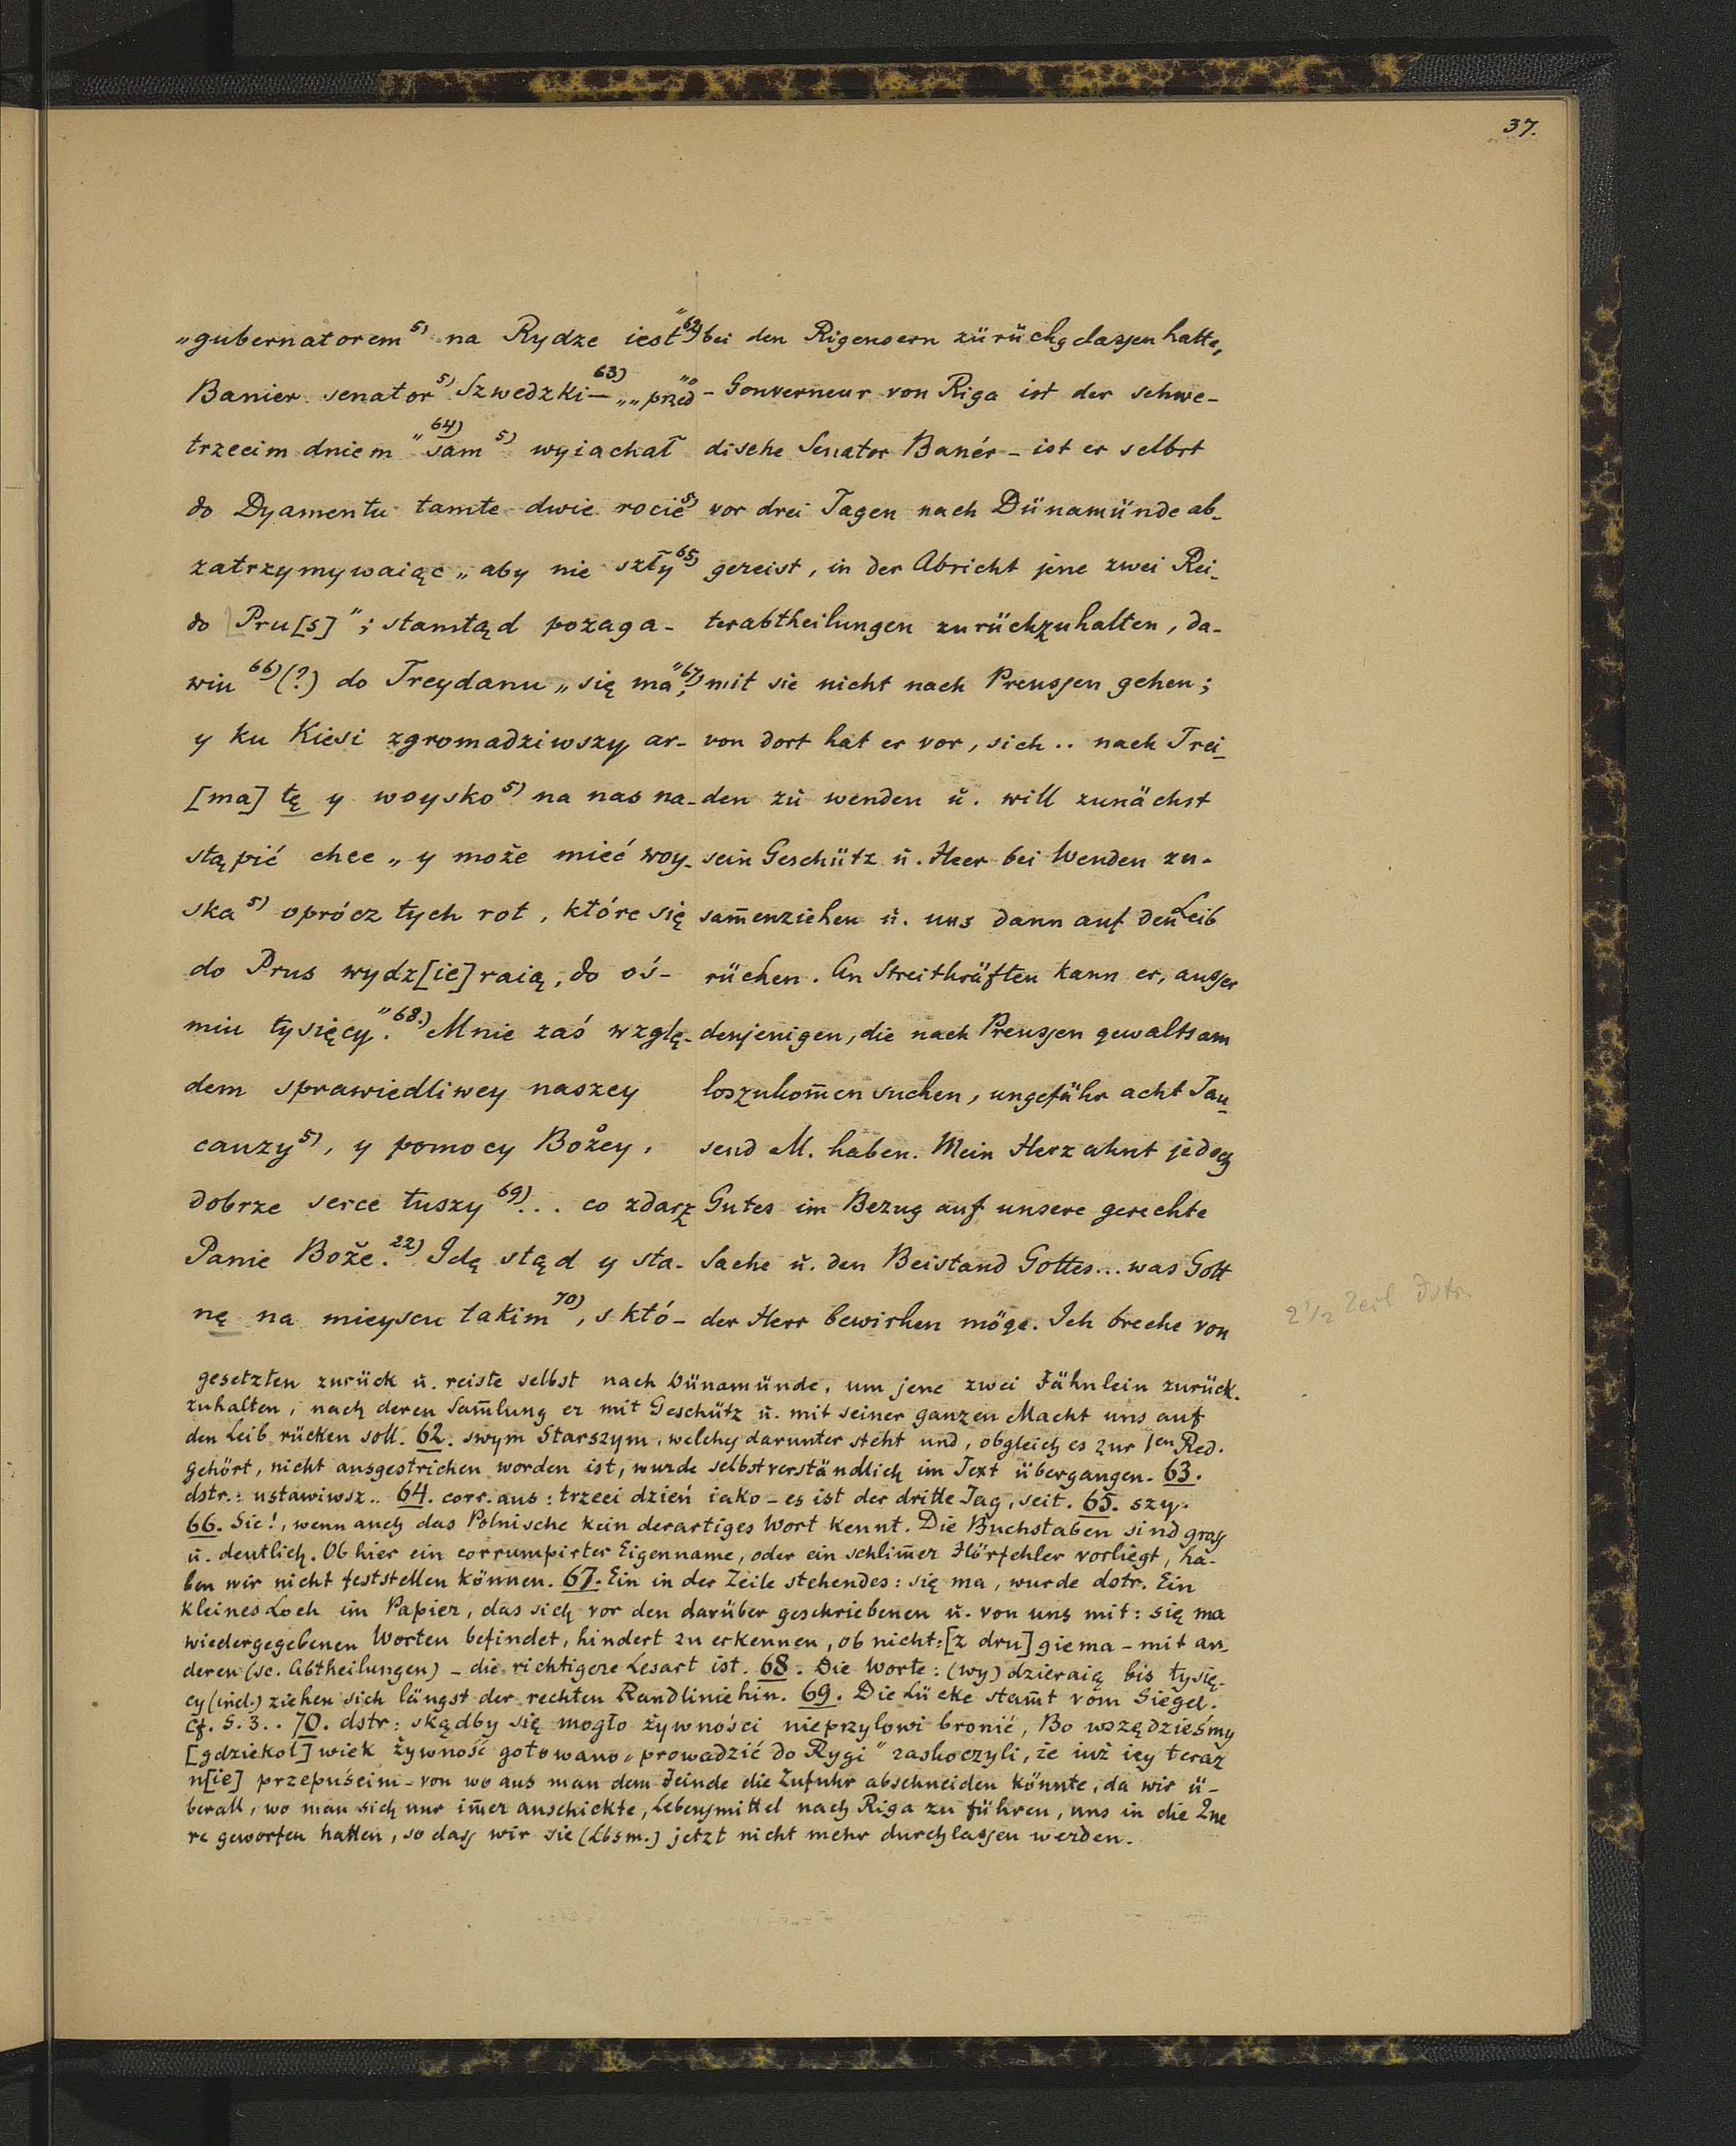 37.
„gubernatorem⁵⁾ na Rydze iest"⁶²⁾
Banier senator⁵⁾ Szwedzki⁶³⁾ — „„przed"
trzecim dniem "sam⁶⁴⁾ ⁵⁾ wyiachał
do Dyamentu tamte dwie rocie⁵⁾
zatrzymywaiąc „aby nie szły⁶⁵⁾
do Pru[s]"; stamtąd pożaga-
wiu⁶⁶⁾(?) do Treydanu „się ma"⁶⁷⁾;
y ku Kiesi zgromadziwszy ar-
[ma]tę y woysko⁵⁾ na nas na-
stąpić chce „y może mieć woy-
ska⁵⁾ oprócz tych rot, które się
do Prus wydz[ie]raią, do oś-
miu tysięcy".⁶⁸⁾ Mnie zaś wzglę-
dem sprawiedliwey naszey
cauzy⁵⁾, y pomocy Bożey,
dobrze serce tuszy⁶⁹⁾... co zdarz
Panie Boże.²²⁾ Idę stąd y sta-
nę na mieyscu takim⁷⁰⁾, s któ-
bei den Rigensern zürückgelassen hatte,
- Gouverneur von Riga ist der schwe-
dische Senator Banér - ist er selbst
vor drei Tagen nach Dünamünde ab-
gereist, in der Absicht jene zwei Rei-
terabtheilungen zurückzuhalten, da-
mit sie nicht nach Preussen gehen;
von dort hat er vor, sich .. nach Trei-
den zu wenden ŭ. will zunächst
sein Geschütz ŭ. Heer bei Wenden zu-
sam̄enziehen ŭ. uns dann auf den Leib
rücken. An Streitkräften kann er, ausser
denjenigen, die nach Preussen gewaltsam
loszukom̄en suchen, ungefähr acht Tau-
send M. haben. Mein Herz ahnt jedoch
Gutes im Bezug auf unsere gerechte
Sache ŭ. den Beistand Gottes... was Gott
der Herr bewirken möge. Ich breche von
2 1/2 Zeil dstr.
gesetzten zurück ŭ. reiste selbst nach Dünamünde, um jene zwei Fähnlein zurück-
zuhalten, nach deren Sam̄lung er mit Geschütz ŭ. mit seiner ganzen Macht uns auf
den Leib rücken soll. 62. swym Starszym, welches darunter steht und, obgleich es zur 1en Red.
gehört, nicht ausgestrichen worden ist, wurde selbstverständlich im Text übergangen. 63.
dstr.: ustawiwsz.. 64. corr. aus: trzeci dzień iako - es ist der dritte Tag, seit. 65. szy.
66. Sic!, wenn auch das Polnische kein derartiges Wort kennt. Die Buchstaben sind gross
ŭ. deutlich. Ob hier ein corrumpirter Eigenname, oder ein schlim̄er Hörfehler vorliegt, ha-
ben wir nicht feststellen können. 67. Ein in der Zeile stehendes: się ma, wurde dstr. Ein
kleines Loch im Papier, das sich vor den darüber geschriebenen ŭ. von uns mit: się ma
wiedergegebenen Worten befindet, hindert zu erkennen, ob nicht: [z dru]giema - mit an-
deren (sc. Abtheilungen) - die richtigere Lesart ist. 68. Die Worte: (wy)dzieraią bis tysię-
cy (incl.) ziehen sich längst der rechten Randlinie hin. 69. Die Lücke stam̄t vom Siegel.
Cf. S. 3.. 70. dstr: skądby się mogło żywności nieprzylowi bronić, Bo wszędzieśmy
[gdziekol]wiek żywność gotowano „prowadzić do Rygi" zaskoczyli, że iuż iey teraz
n[ie] przepuścim - von wo aus man dem Feinde die Zufuhr abschneiden könnte, da wir ü-
berall, wo man sich nur im̄er anschickte, Lebensmittel nach Riga zu führen, uns in die Que
re geworfen hatten, so dass wir sie (Lbsm.) jetzt nicht mehr durchlassen werden.